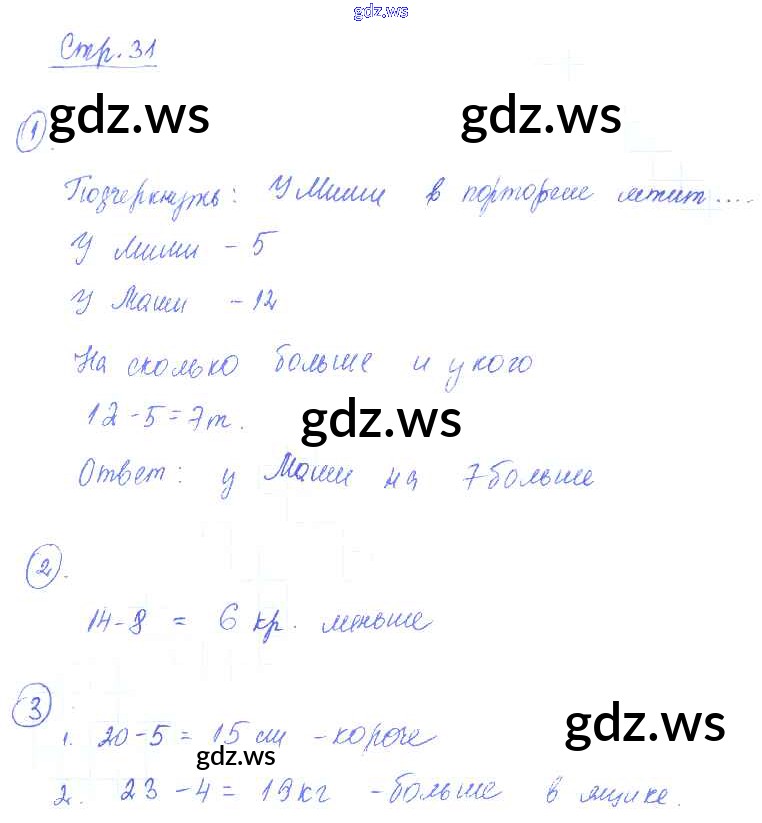 gdz.ws
Стр. 31
gdz.ws gdz.ws
1
Подчеркнуть: У Миши в портфеле лежит ....
У Миши - 5
У Маши - 12
На сколько больше и у кого
12-5=7т.
gdz.ws
Ответ: у Маши на 7 больше
2.
14-8 = 6 кр. меньше
3
gdz.ws
1. 20-5 = 15 см - короче
gdz.ws
2. 23-4= 19кг - больше в ящике.